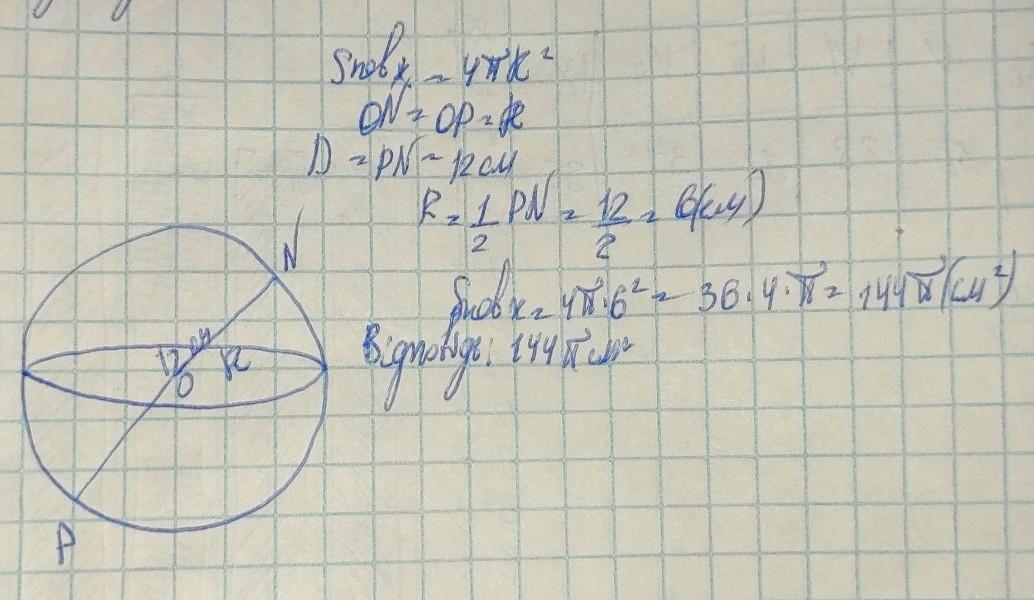 Sповх = 4πR²
ON = OP = R
D = PN = 12 см
R = 1/2 PN = 12/2 = 6(см)
Sповх = 4π·6² = 36·4·π = 144π(см²)
Відповідь: 144π см²
N
12 см R
O
P